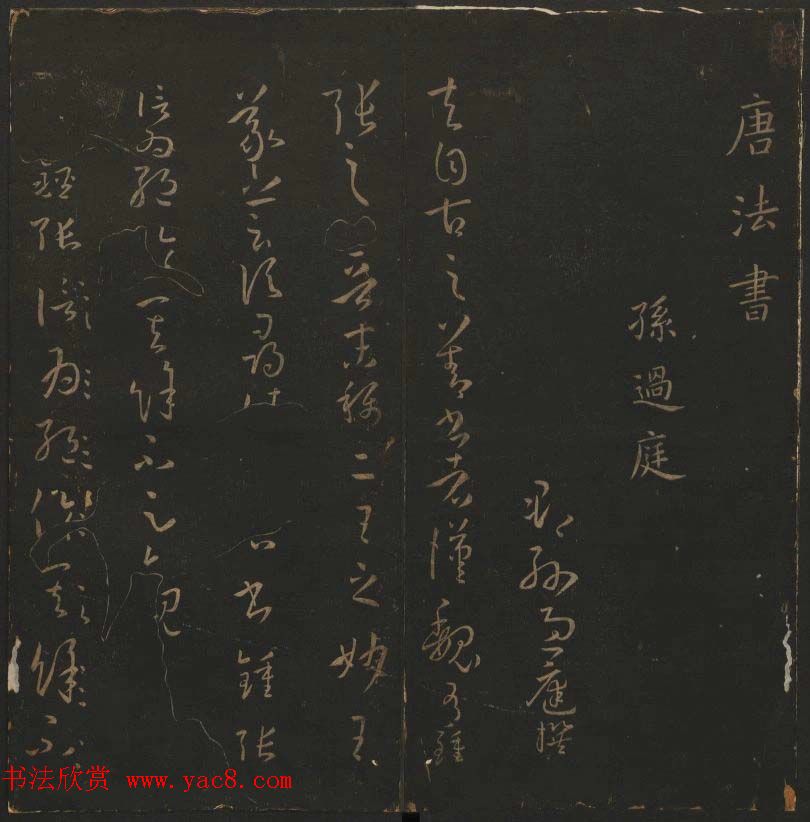 唐法書
孫過庭
郡孫過庭撰
夫自古之善書者漢魏有鍾
張之晉末稱二王之妙王
羲之云頃尋名書鍾張
信為絕倫其餘不足觀
鍾張信為絕倫其餘不
书法欣赏 www.yac8.com